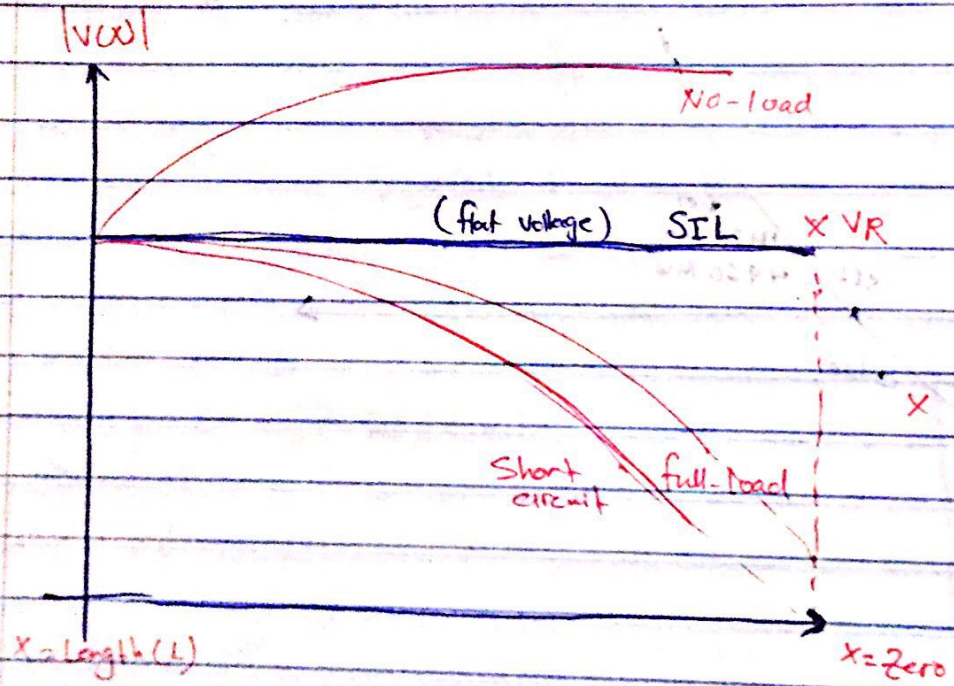 |V(x)|
No-load
(flat voltage) SIL x VR
x
Short
circuit
full-load
x = Length (L)
x = Zero